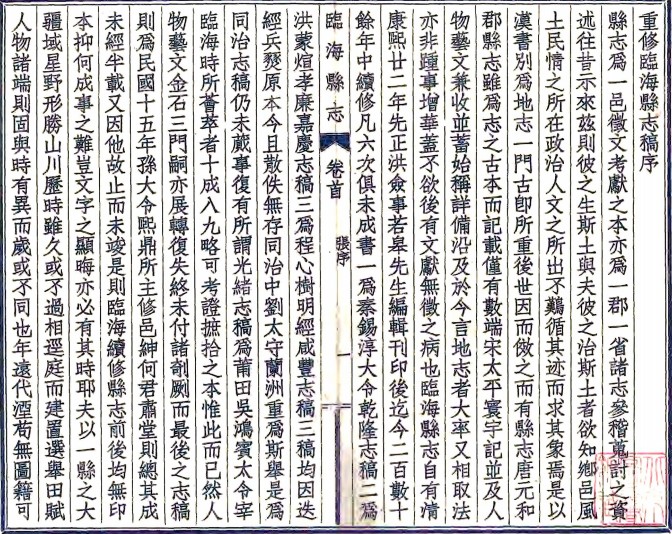 重修臨海縣志稿序
縣志爲一邑徵文考獻之本亦爲一郡一省諸志參稽蒐討之資
述往昔示來茲則彼之生斯土與夫彼之治斯土者欲知鄉邑風
土民情之所在政治人文之所出不囏循其迹而求其象焉是以
漢書別爲地志一門古卽所重後世因而倣之而有縣志唐元和
郡縣志雖爲志之古本而記載僅有數端宋太平寰宇記並及人
物藝文兼收並蓄始稱詳備沿及於今言地志者大率又相取法
亦非踵事增華蓋不欲後有文獻無徵之病也臨海縣志自有清
康熙廿二年先正洪僉事若皋先生編輯刊印後迄今二百數十
餘年中續修凡六次俱未成書一爲秦錫淳大令乾隆志稿二爲
洪蒙煊孝廉嘉慶志稿三爲程心樹明經咸豐志稿三稿均因迭
經兵燹原本今且散佚無存同治中劉太守蘭洲重爲斯舉是爲
同治志稿仍未蕆事復有所謂光緒志稿爲莆田吳鴻賓太令宰
臨海時所薈萃者十成八九略可考證摭拾之本惟此而已然人
物藝文金石三門嗣亦展轉復失終未付諸剞劂而最後之志稿
則爲民國十五年孫大令熙鼎所主修邑紳何君肅堂則總其成
未經半載又因他故止而未竣是則臨海續修縣志前後均無印
本抑何成事之難豈文字之顯晦亦必有其時耶夫以一縣之大
疆域星野形勝山川歷時雖久或不過相逕庭而建置選舉田賦
人物諸端則固與時有異而歲或不同也年遠代湮苟無圖籍可
臨海縣志 卷首 張序 一